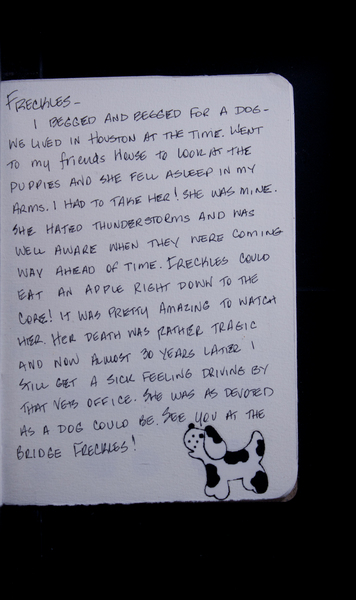 FRECKLES –
I BEGGED AND BEGGED FOR A DOG –
WE LIVED IN HOUSTON AT THE TIME. WENT
TO my friends HOUSE TO LOOK AT THE
PUPPIES AND SHE FELL ASLEEP IN MY
ARMS. I HAD TO TAKE HER! SHE WAS MINE.
SHE HATED THUNDERSTORMS AND WAS
WELL AWARE WHEN THEY WERE COMING
WAY AHEAD OF TIME. FRECKLES COULD
EAT AN APPLE RIGHT DOWN TO THE
CORE! IT WAS PRETTY AMAZING TO WATCH
HER. HER DEATH WAS RATHER TRAGIC
AND NOW ALMOST 30 YEARS LATER I
STILL GET A SICK FEELING DRIVING BY
THAT VETS OFFICE. SHE WAS AS DEVOTED
AS A DOG COULD BE. SEE YOU AT THE
BRIDGE FRECKLES!